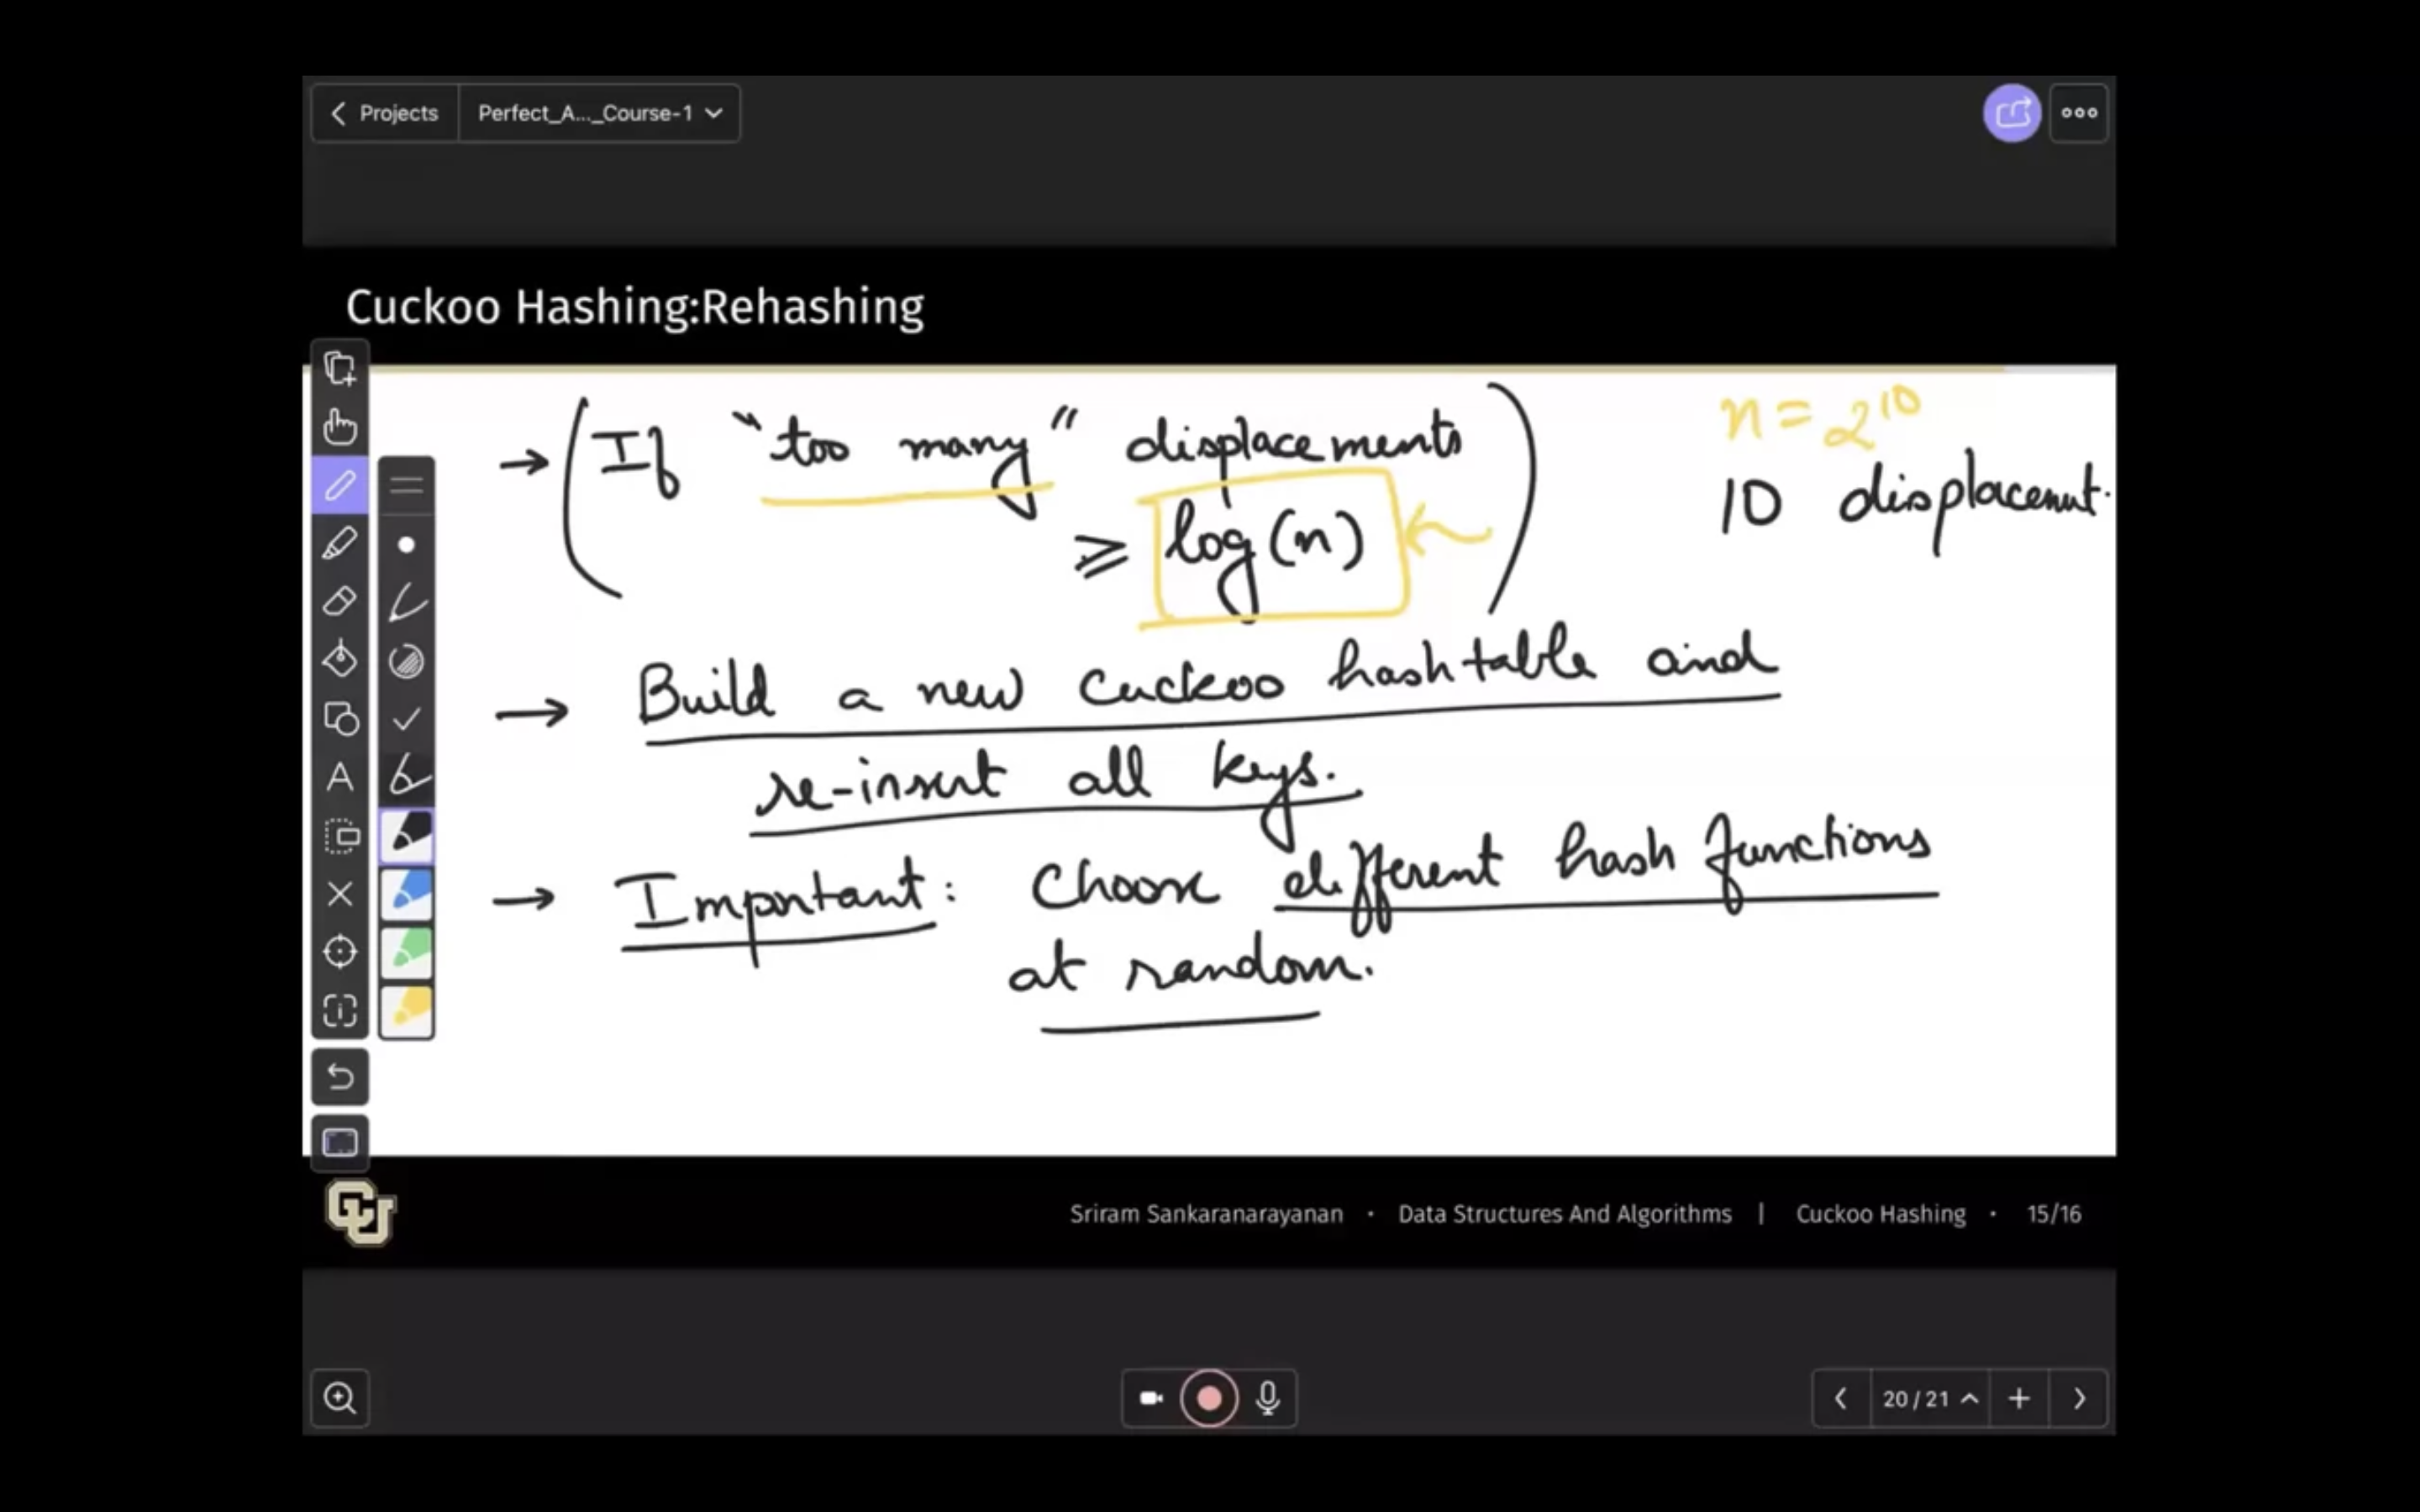 Projects
Perfect_A..._Course-1
Cuckoo Hashing:Rehashing
→ (If "too many" displacements
≥ log(n))
n = 2^10
10 displacemnt.
→ Build a new cuckoo hashtable and
re-insert all keys.
→ Important: Choose different hash functions
at random.
A
CU
Sriram Sankaranarayanan · Data Structures And Algorithms | Cuckoo Hashing · 15/16
20 / 21